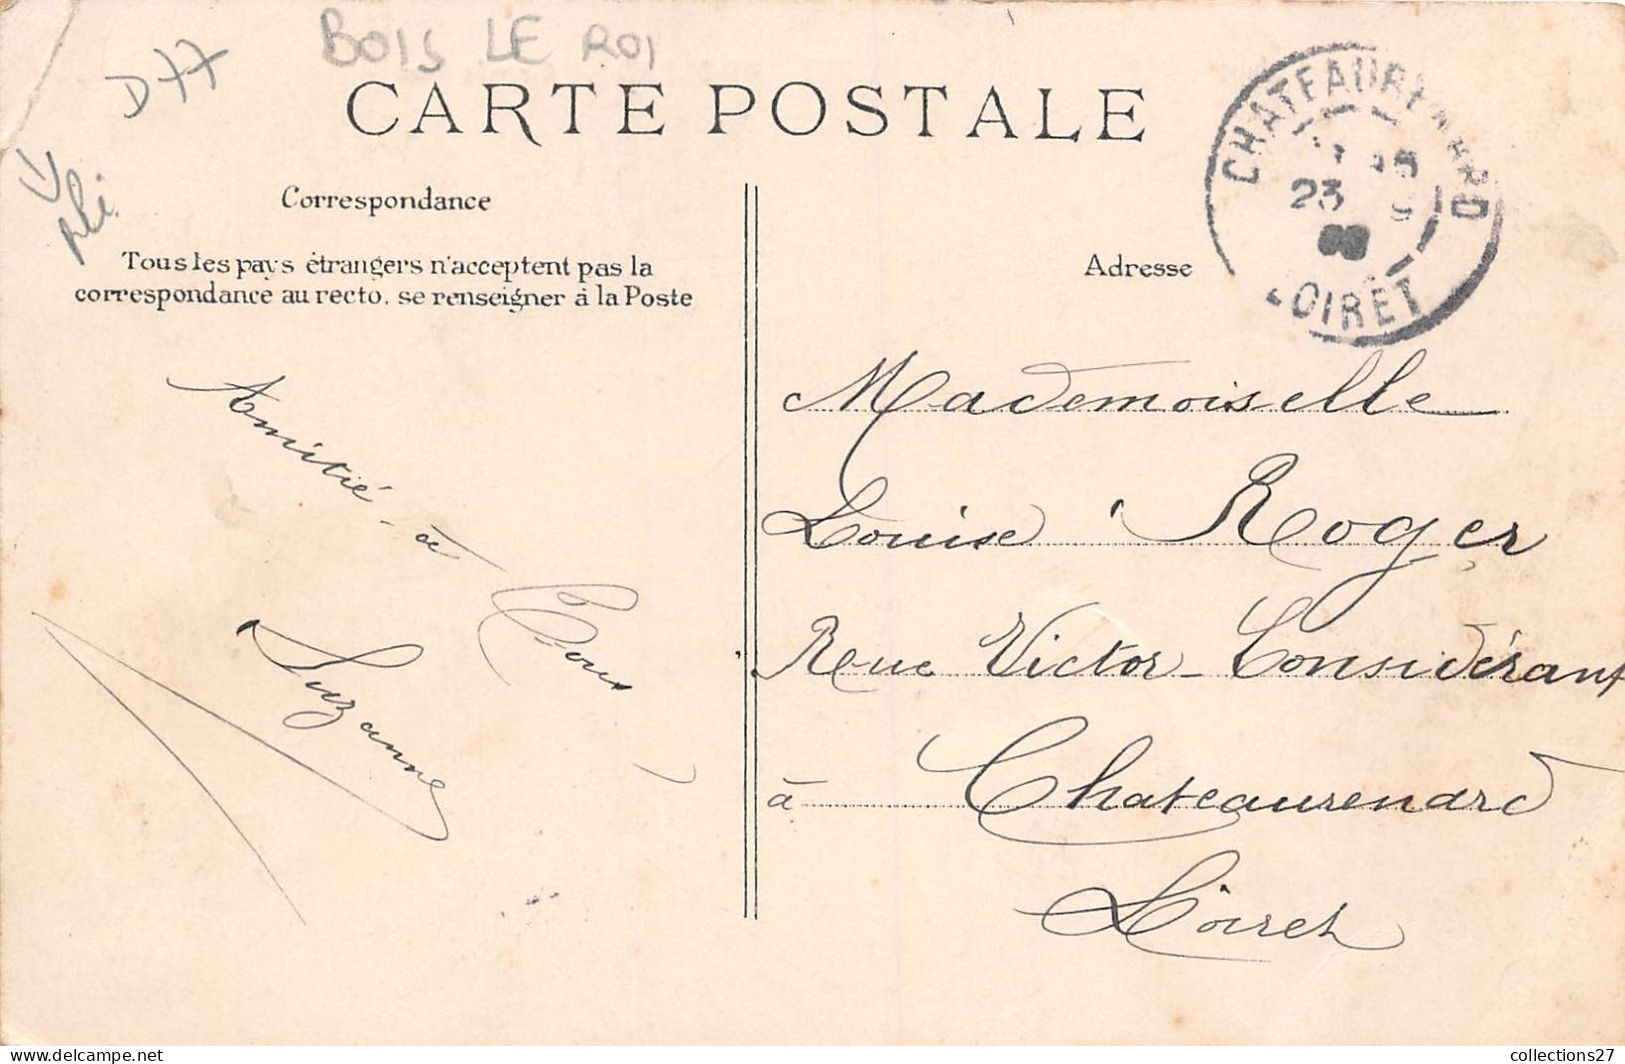 BOIS LE ROI
D77
pli
CARTE POSTALE
Correspondance
Tous les pays étrangers n'acceptent pas la
correspondance au recto, se renseigner à la Poste
Amitié - à
Tous
Suzanne
CHATEAURENARD
23
LOIRET
Adresse
Mademoiselle
Louise Roger
Rue Victor-Considérant
à Chateaurenard
Loiret
delcampe.net
collections27